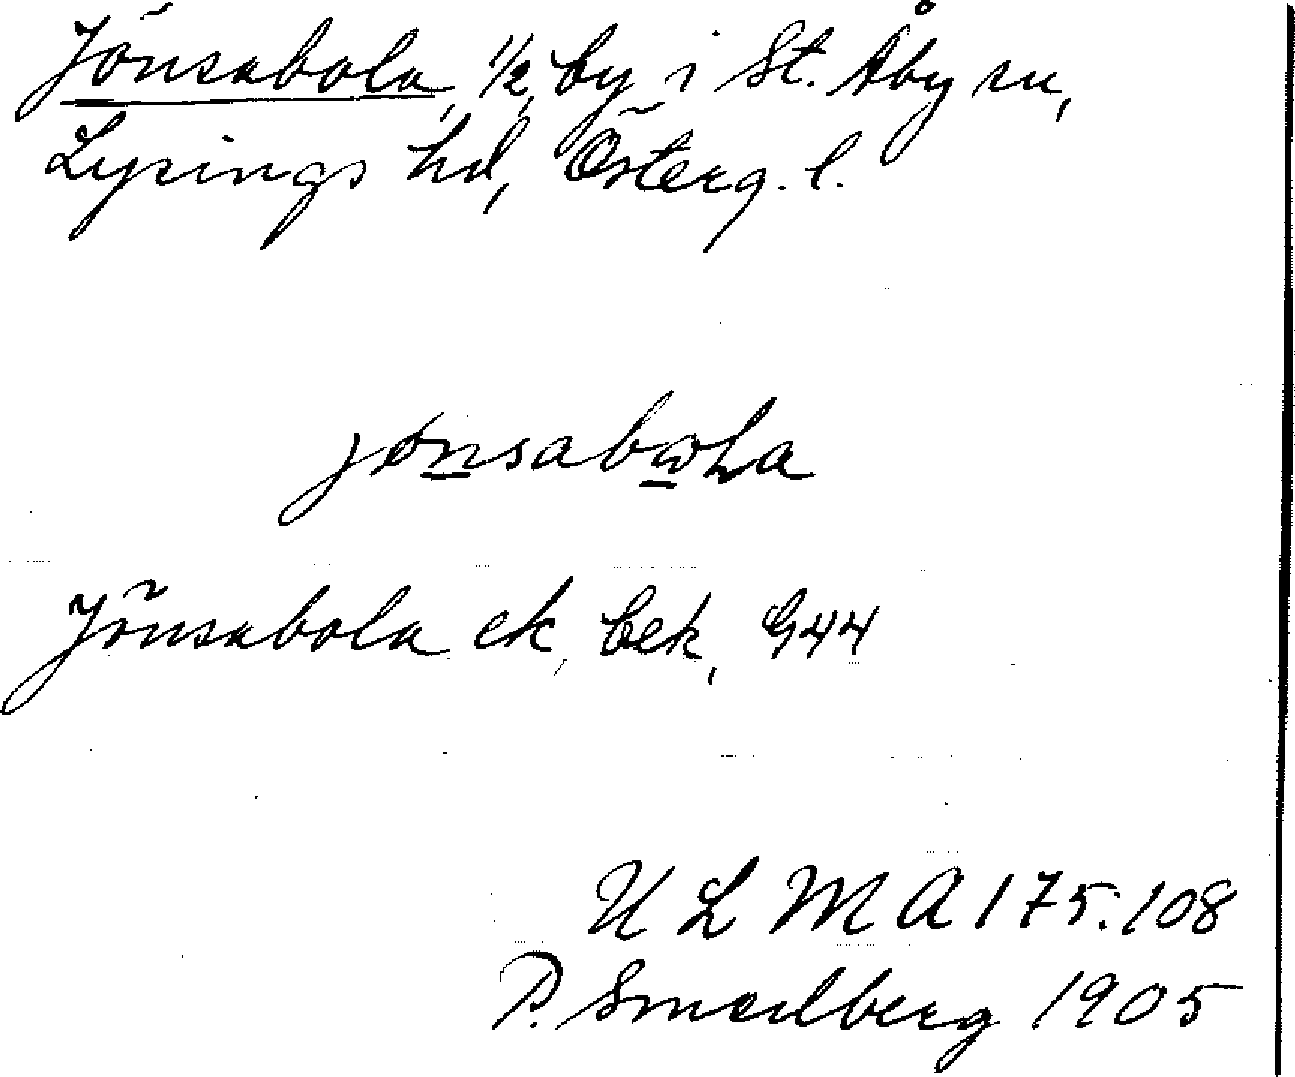 Jönsabola, 1/2, by i St. Åby sn,
Lysings hd, Österg. l.
Jönsabola ek, bek, G44
ULMA 175:108
P. Smedberg 1905